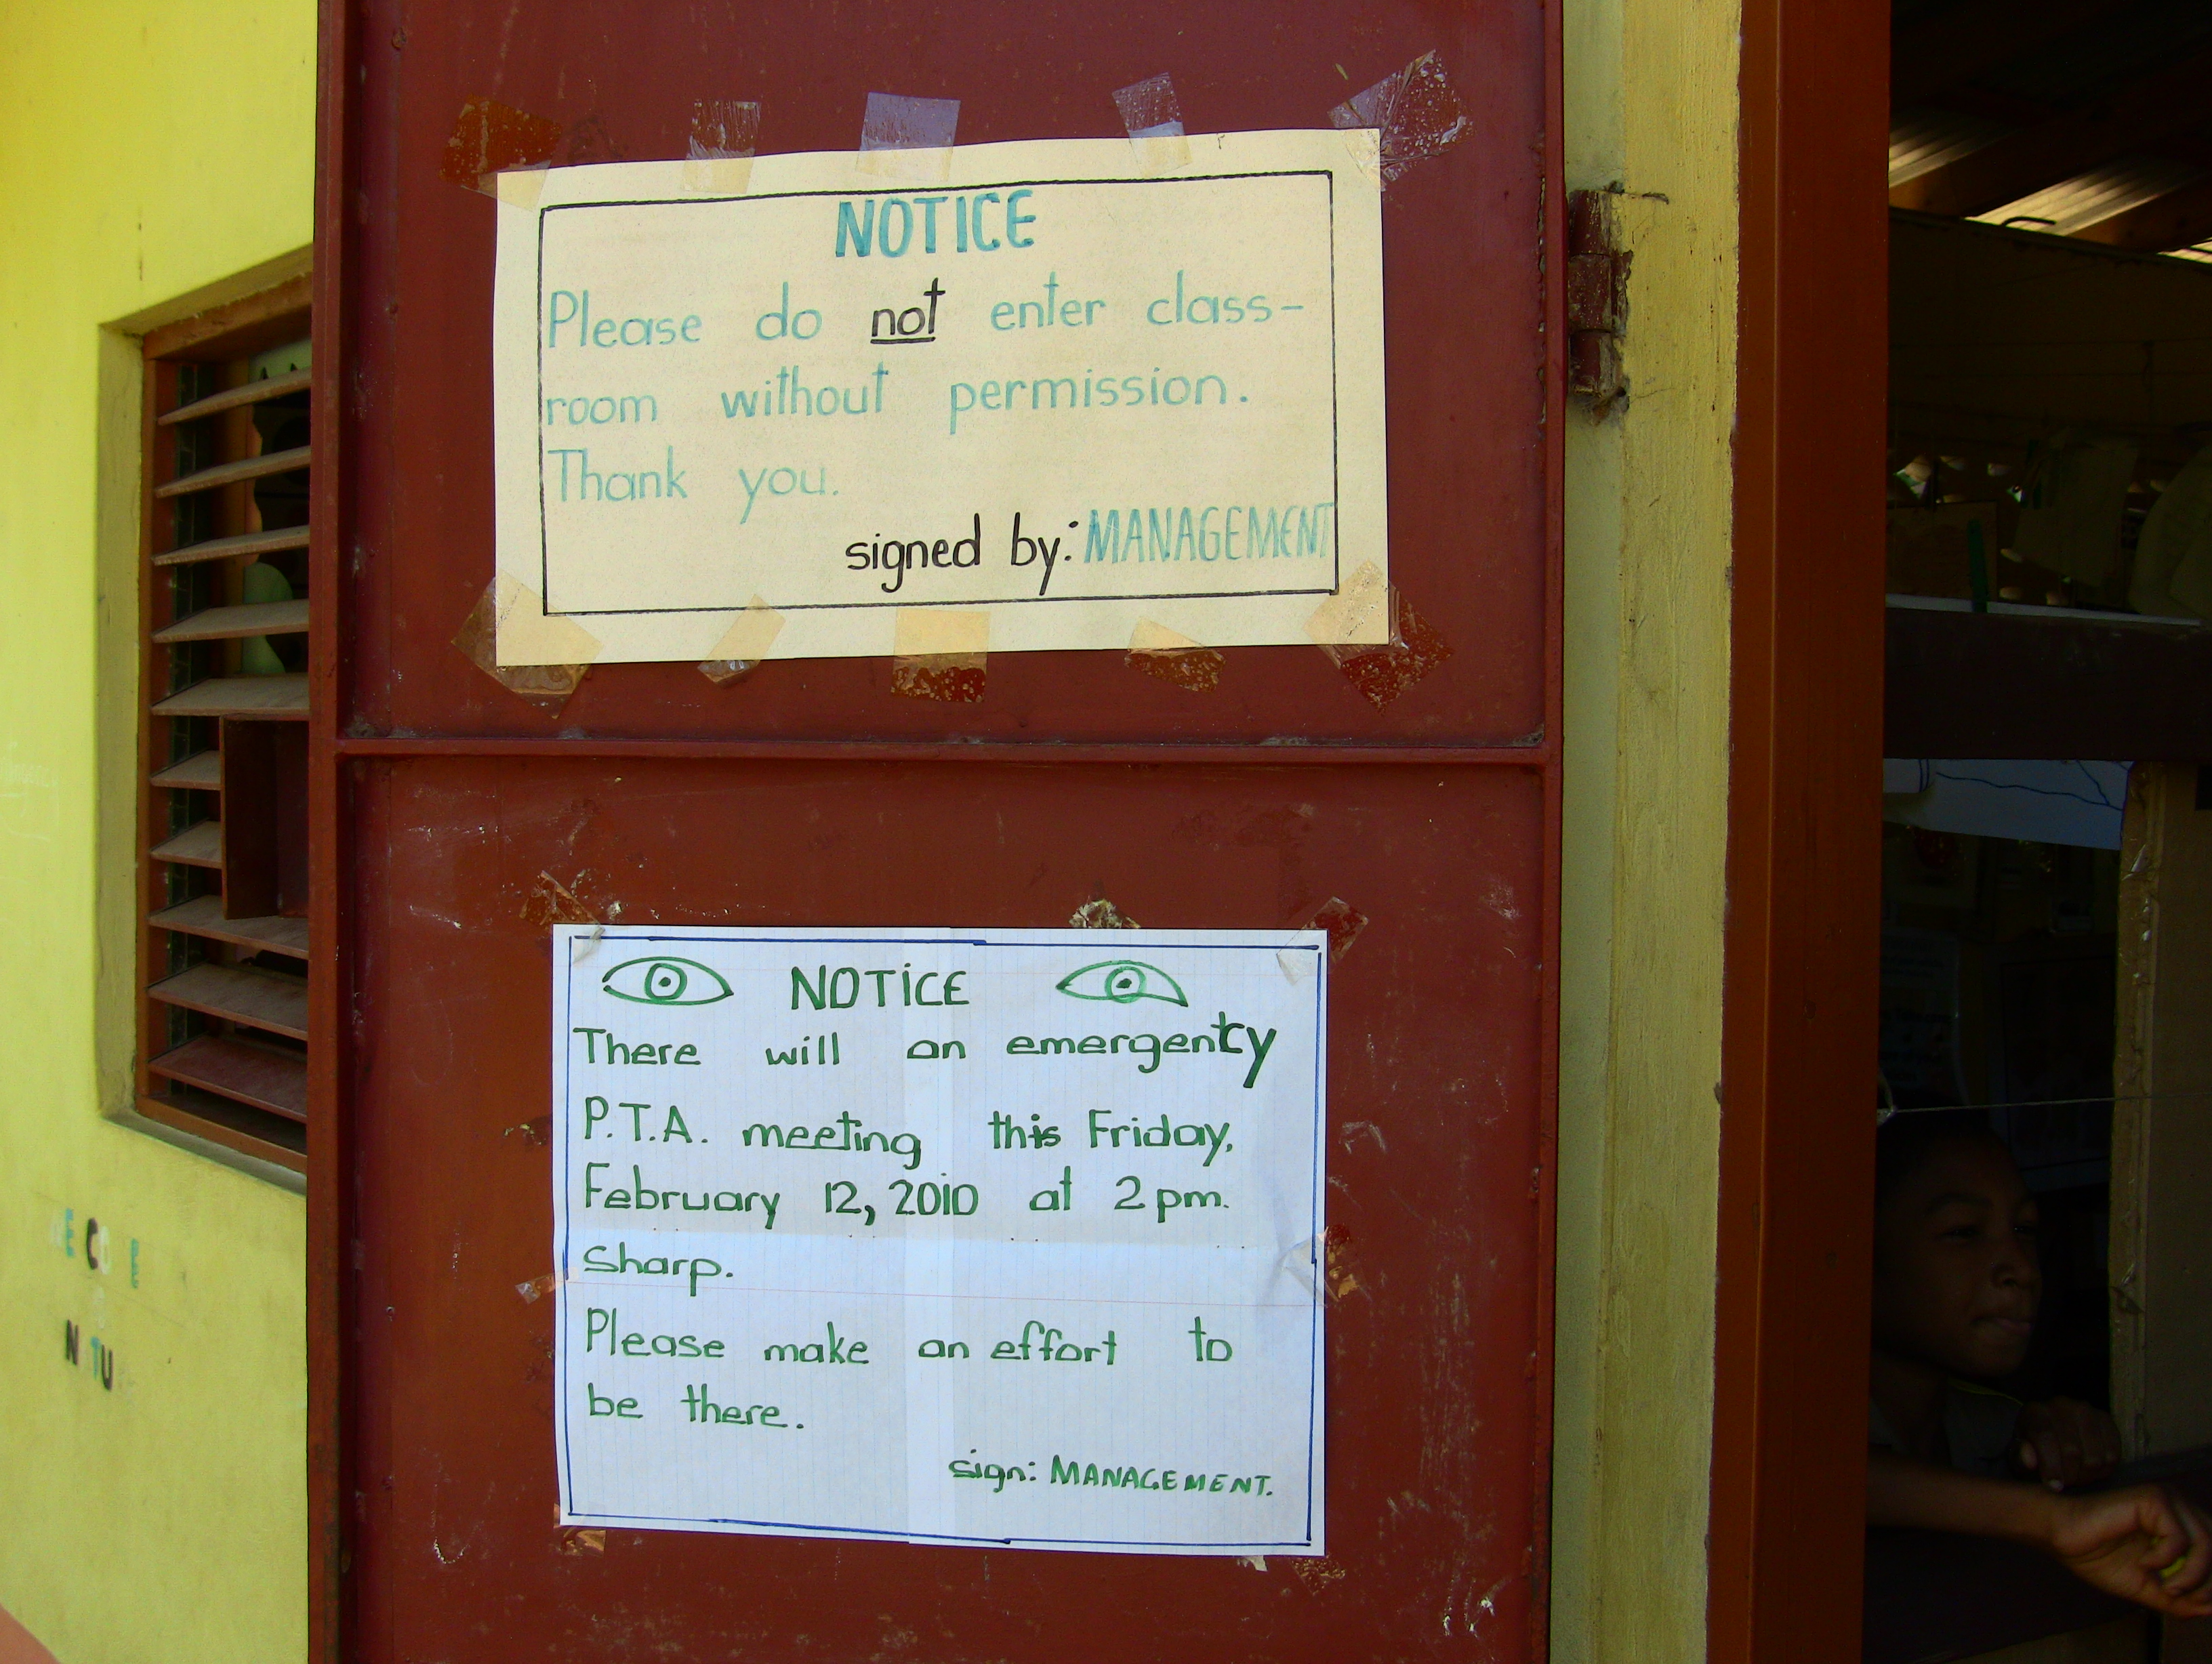 NOTICE
Please do not enter class-
room without permission.
Thank you.
signed by: MANAGEMENT
NOTICE
There will an emergency
P.T.A. meeting this Friday,
February 12, 2010 at 2 pm.
Sharp.
Please make an effort to
be there.
sign: MANAGEMENT.